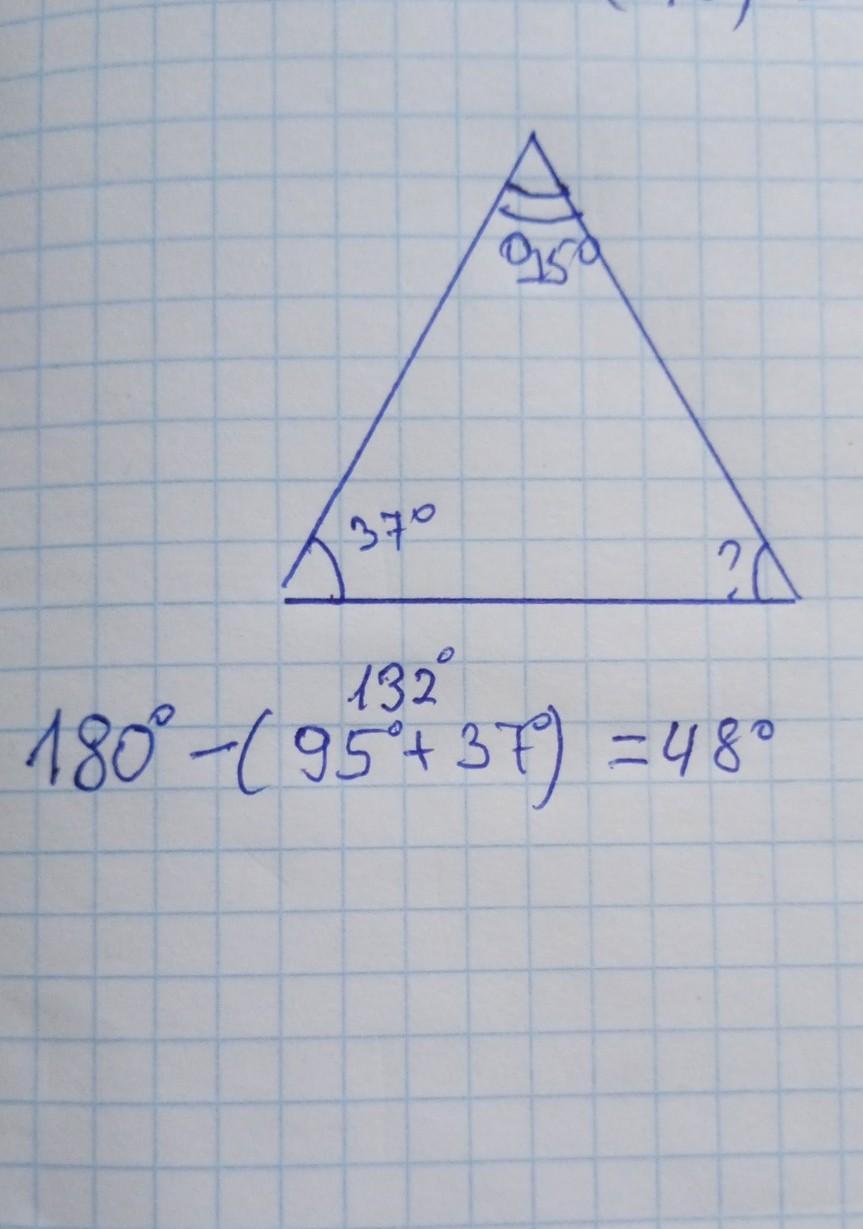 95°
37°
?
132°
180° - ( 95° + 37° ) = 48°